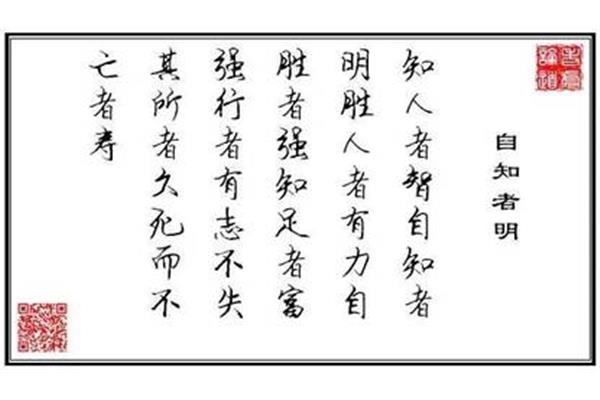 自知者明
知人者智自知者
明胜人者有力自
胜者强知足者富
强行者有志不失
其所者久死而不
亡者寿